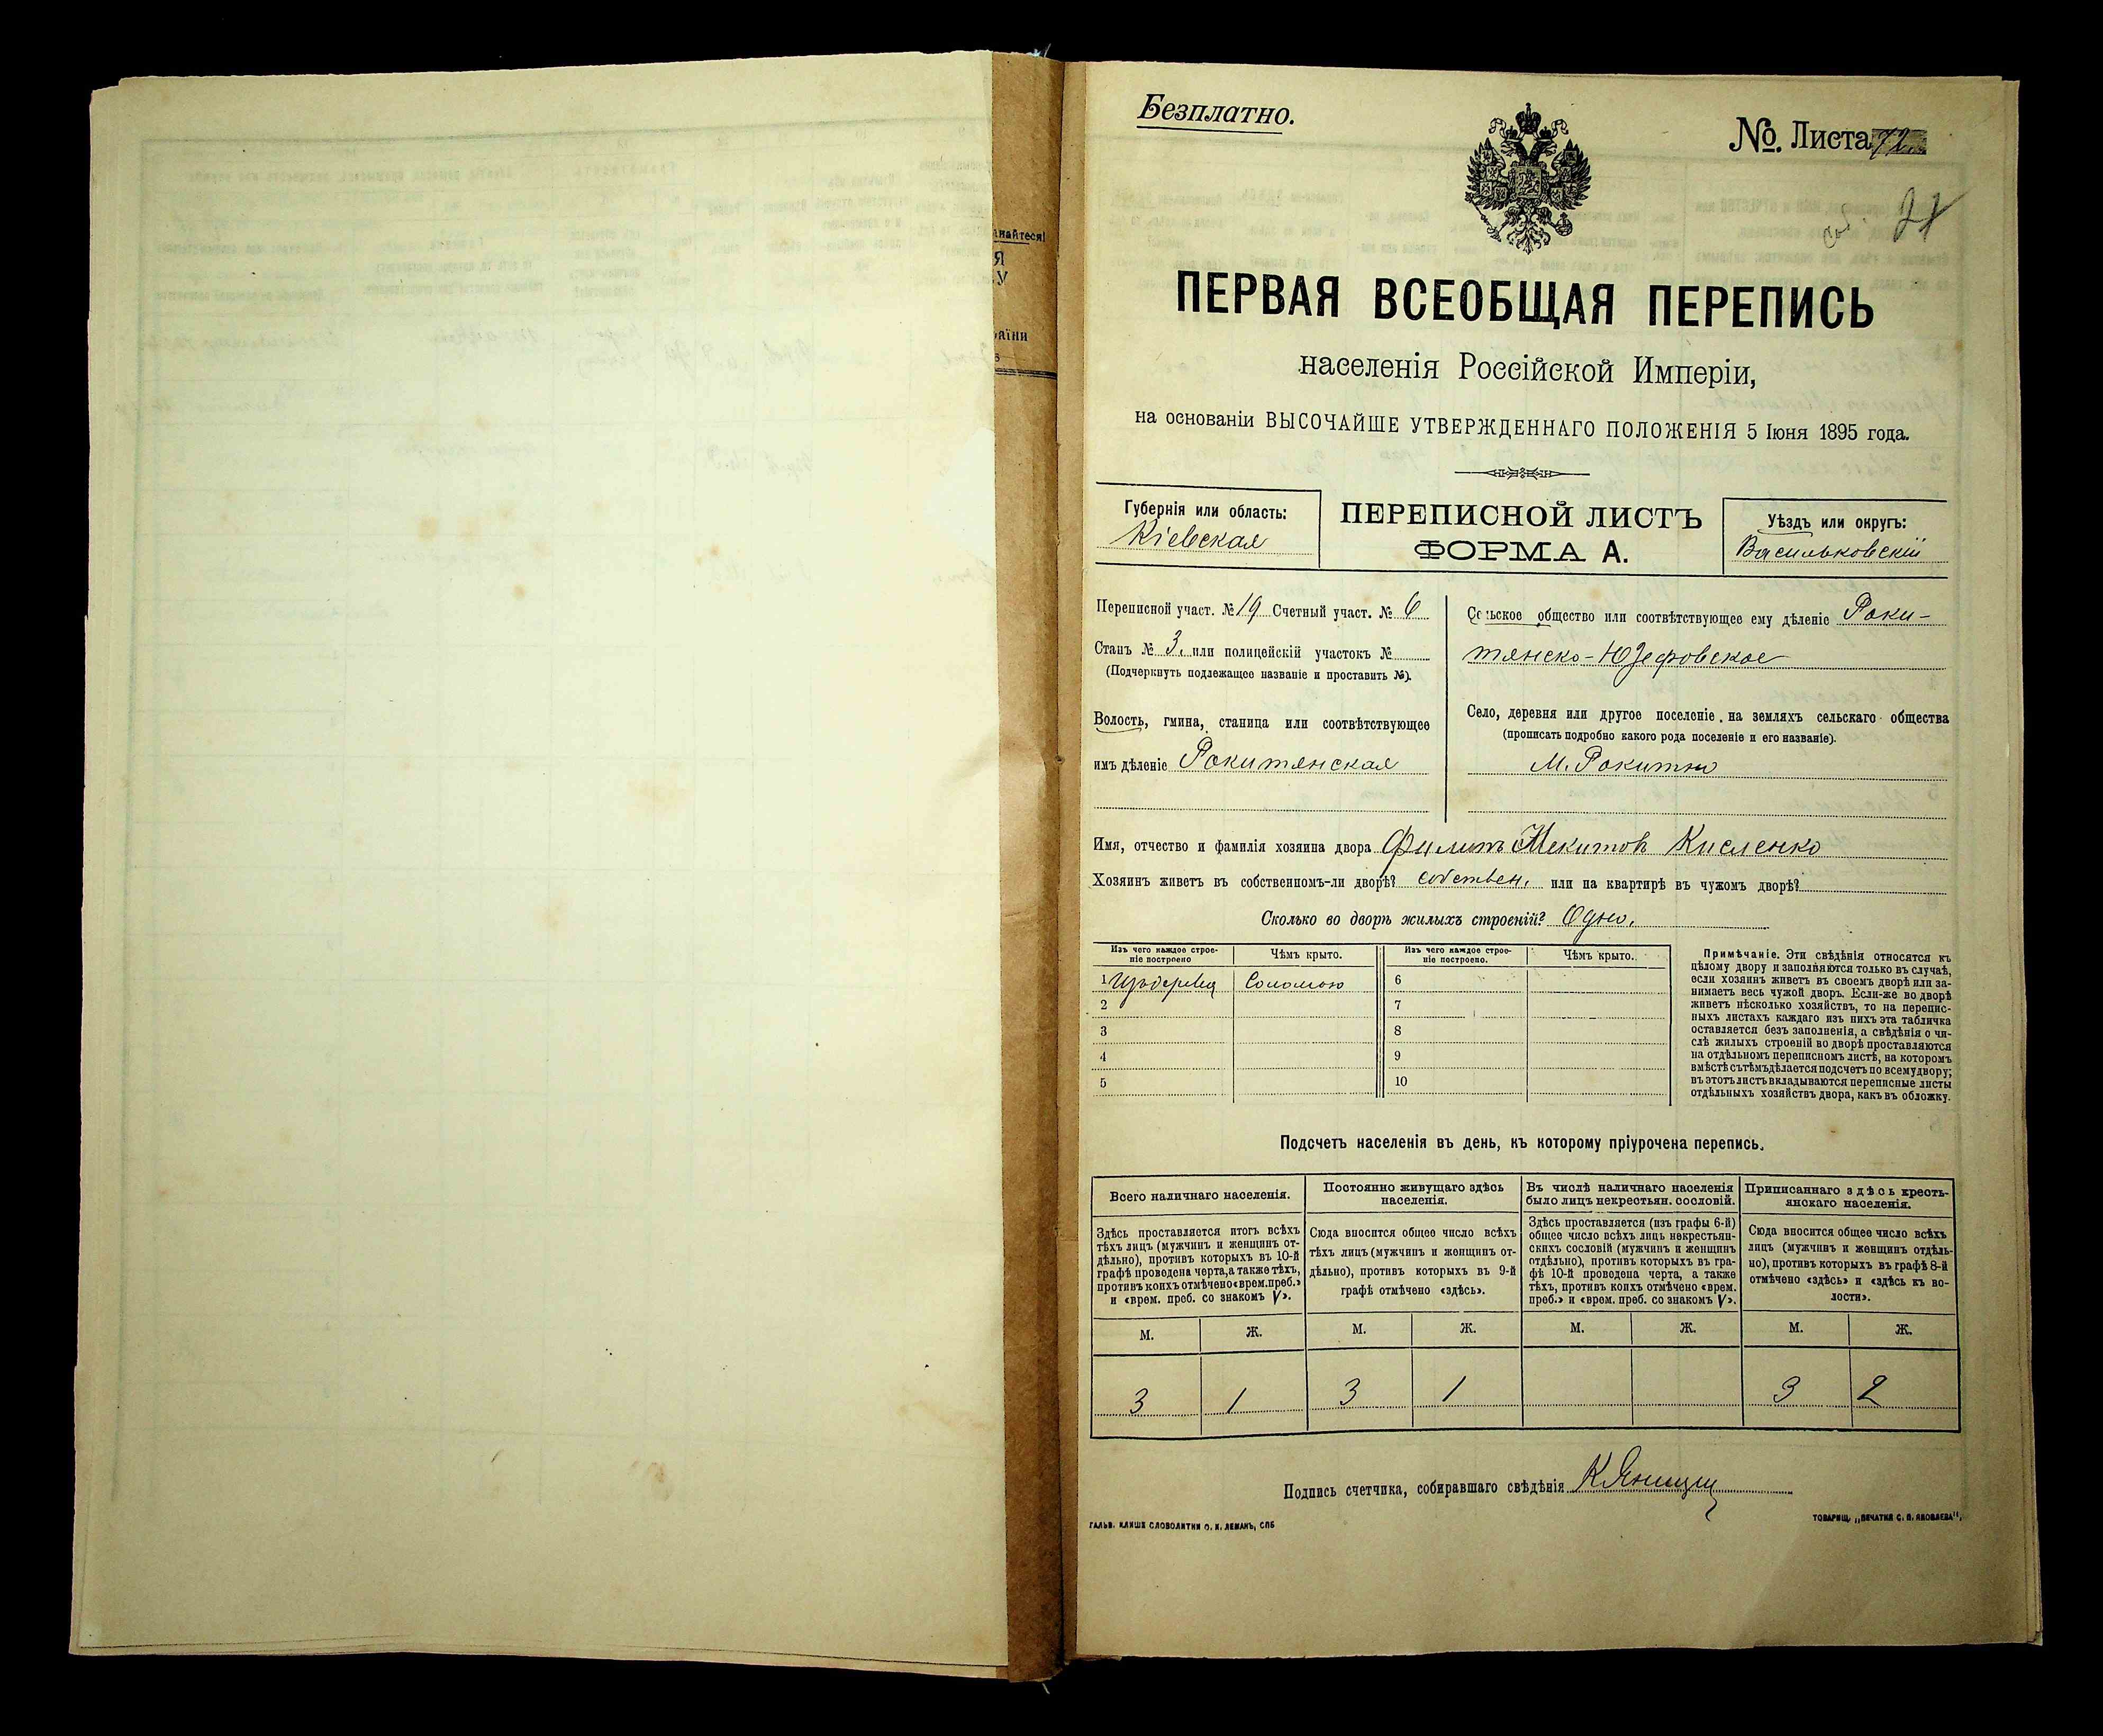 Безплатно.
№. Листа 72
21
ПЕРВАЯ ВСЕОБЩАЯ ПЕРЕПИСЬ
населенія Россійской Имперіи,
на основаніи ВЫСОЧАЙШЕ УТВЕРЖДЕННАГО ПОЛОЖЕНІЯ 5 Іюня 1895 года.
Губернія или область:
Кіевская
ПЕРЕПИСНОЙ ЛИСТЪ
ФОРМА А.
Уѣздъ или округъ:
Васильковскій
Переписной участ. № 19 Счетный участ. № 6
Станъ № 3. или полицейскій участокъ №
(Подчеркнуть подлежащее названіе и проставить №).
Волость, гмина, станица или соотвѣтствующее
имъ дѣленіе Рокитянская
Сельское общество или соотвѣтствующее ему дѣленіе Роки-
тянско-Юзефовское
Село, деревня или другое поселеніе на земляхъ сельскаго общества
(прописать подробно какого рода поселеніе и его названіе).
М. Рокитно
Имя, отчество и фамилія хозяина двора Филипъ Микитовъ Кисленко
Хозяинъ живетъ въ собственномъ-ли дворѣ? собствен. или на квартирѣ въ чужомъ дворѣ?
Сколько во дворѣ жилыхъ строеній? Одно.
Изъ чего каждое строе-
ніе построено
Чѣмъ крыто.
Изъ чего каждое строе-
ніе построено.
Чѣмъ крыто.
1 Изъ дерева Соломою 6
2 7
3 8
4 9
5 10
Примѣчаніе. Эти свѣдѣнія относятся къ
цѣлому двору и заполняются только въ случаѣ,
если хозяинъ живетъ въ своемъ дворѣ или за-
нимаетъ весь чужой дворъ. Если-же во дворѣ
живетъ нѣсколько хозяйствъ, то на перепис-
ныхъ листахъ каждаго изъ нихъ эта табличка
оставляется безъ заполненія, а свѣдѣнія о чи-
слѣ жилыхъ строеній во дворѣ проставляются
на отдѣльномъ переписномъ листѣ, на которомъ
вмѣстѣ съ тѣмъ дѣлается подсчетъ по всему двору;
въ этотъ листъ вкладываются переписные листы
отдѣльныхъ хозяйствъ двора, какъ въ обложку.
Подсчетъ населенія въ день, къ которому пріурочена перепись.
Всего наличнаго населенія.
Здѣсь проставляется итогъ всѣхъ
тѣхъ лицъ (мужчинъ и женщинъ от-
дѣльно), противъ которыхъ въ 10-й
графѣ проведена черта, а также тѣхъ,
противъ коихъ отмѣчено «врем. преб.»
и «врем. преб. со знакомъ V».
Постоянно живущаго здѣсь
населенія.
Сюда вносится общее число всѣхъ
тѣхъ лицъ (мужчинъ и женщинъ от-
дѣльно), противъ которыхъ въ 9-й
графѣ отмѣчено «здѣсь».
Въ числѣ наличнаго населенія
было лицъ некрестьян. сословій.
Здѣсь проставляется (изъ графы 6-й)
общее число всѣхъ лицъ некрестьян-
скихъ сословій (мужчинъ и женщинъ
отдѣльно), противъ которыхъ въ гра-
фѣ 10-й проведена черта, а также
тѣхъ, противъ коихъ отмѣчено «врем.
преб.» и «врем. преб. со знакомъ V».
Приписаннаго здѣсь кресть-
янскаго населенія.
Сюда вносится общее число всѣхъ
лицъ (мужчинъ и женщинъ отдѣль-
но), противъ которыхъ въ графѣ 8-й
отмѣчено «здѣсь» и «здѣсь къ во-
лости».
М. Ж. М. Ж. М. Ж. М. Ж.
3 1 3 1 3 2
Подпись счетчика, собиравшаго свѣдѣнія
ГАЛЬВ. КЛИШЕ СЛОВОЛИТНИ О. И. ЛЕМАНЪ, СПБ
ТОВАРИЩ. „ПЕЧАТНЯ С. П. ЯКОВЛЕВА“,